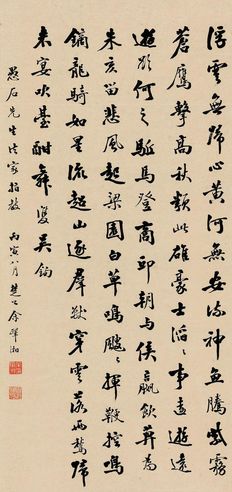 浮雲無歸心黃河無安流神魚騰紫霧
蒼鷹擊高秋類此雄豪士滔滔事遠遊遠
遊欲何之驅馬登商邱朝与侯嬴飲莫為
朱亥留悲風起梁園白草鳴颼颼揮鞭控鳴
鏑龍騎如星流超山逐群獸穿雲落兩鶖歸
来宴吹臺酣舞雙吴鉤
愚石先生法家指教 丙寅八月楚人余肇湘